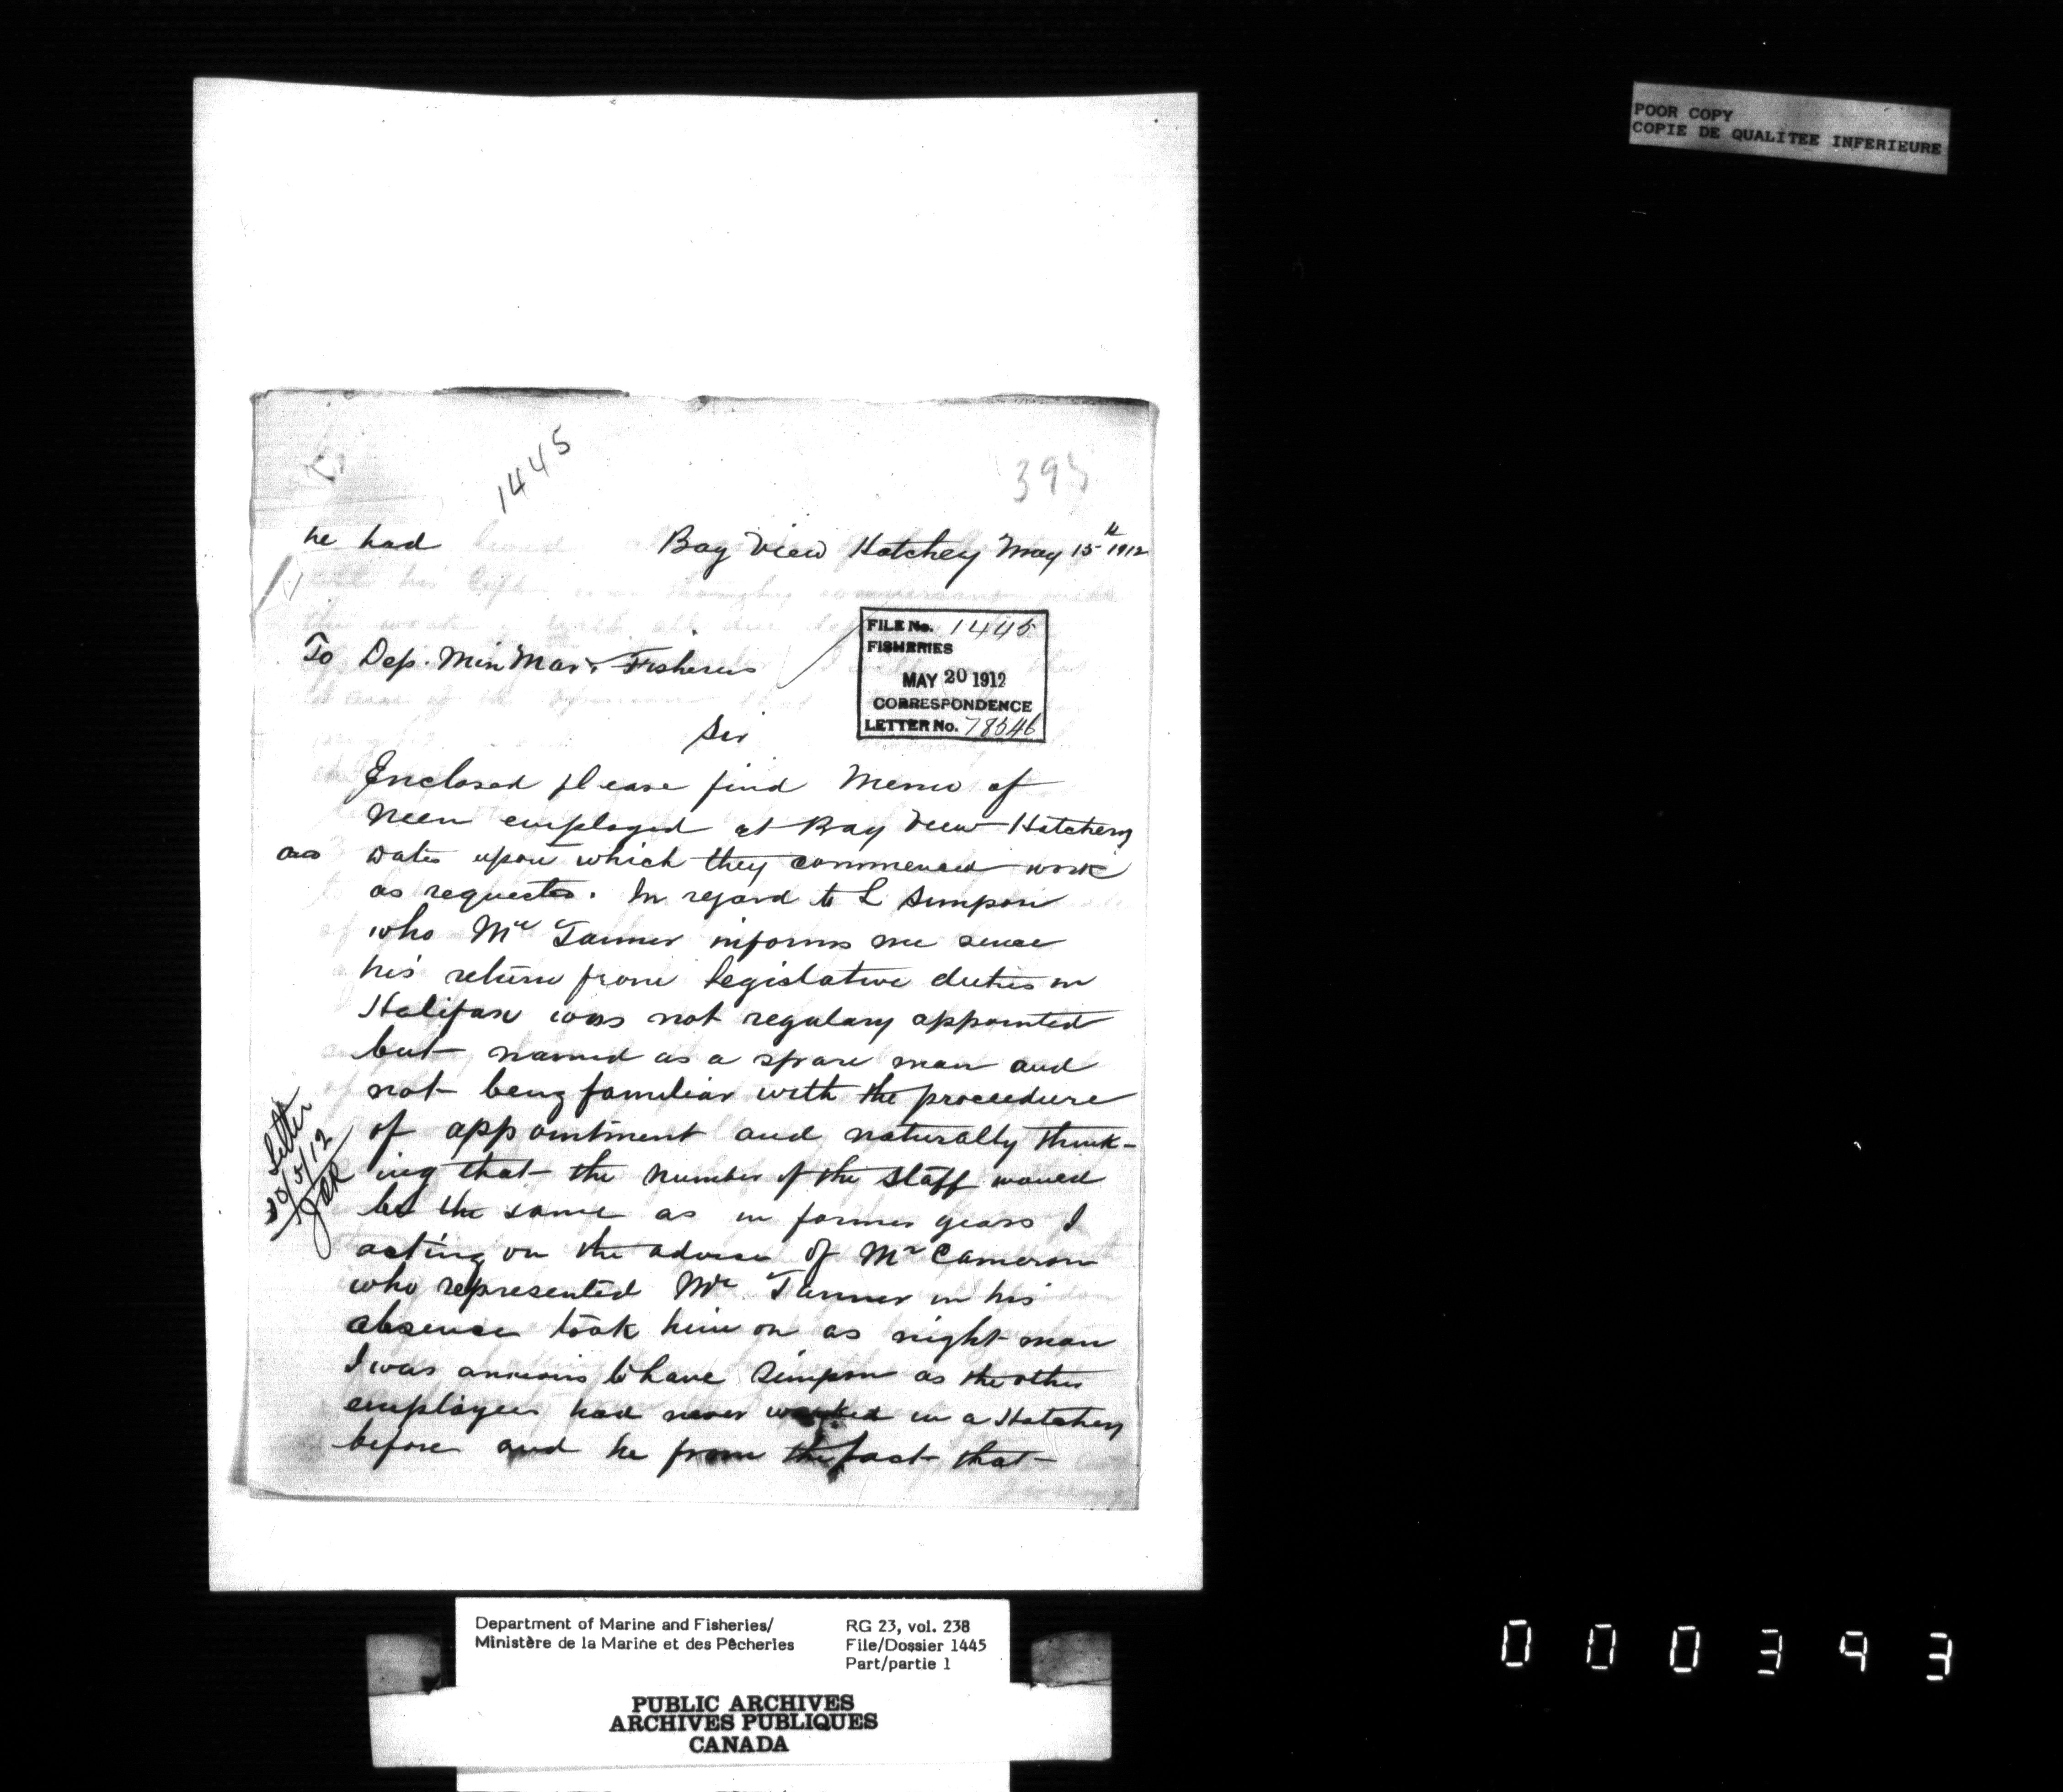 POOR COPY
COPIE DE QUALITEE INFERIEURE
1445
he had
Bay View Hatchey May 15th 1912
FILE No. 1445
FISHERIES
MAY 20 1912
CORRESPONDENCE
LETTER No. 78546
To Dep. Min Mar. Fisheries
Sir
Enclosed please find Memo of
Men employed at Bay View Hatchery
and Dates upon which they commenced work
as requested. In regard to L Simpson
who Mr Tanner informs me since
his return from legislative duties in
Halifax was not regulary appointed
but named as a spare man and
not being familiar with the proceedure
of appointment and naturally think-
ing that the number of the staff would
be the same as in former years I
acting on the advise of Mr Cameron
who represented Mr Tanner in his
absence took him on as night man
I was anxious to have Simpson as the other
employees had never worked in a Hatchery
before and he from the fact that
Letter
Department of Marine and Fisheries/
Ministère de la Marine et des Pêcheries
RG 23, vol. 238
File/Dossier 1445
Part/partie 1
PUBLIC ARCHIVES
ARCHIVES PUBLIQUES
CANADA
000393